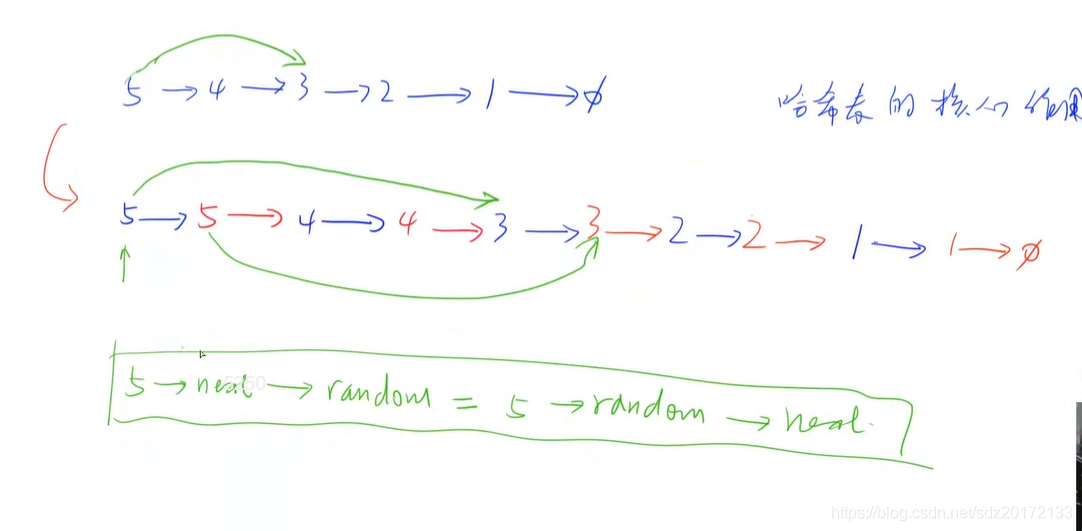 5 → 4 → 3 → 2 → 1 → ∅
哈希表的核心作用
5 → 5 → 4 → 4 → 3 → 3 → 2 → 2 → 1 → 1 → ∅
5 → next → random = 5 → random → next.
https://blog.csdn.net/sdz20172133